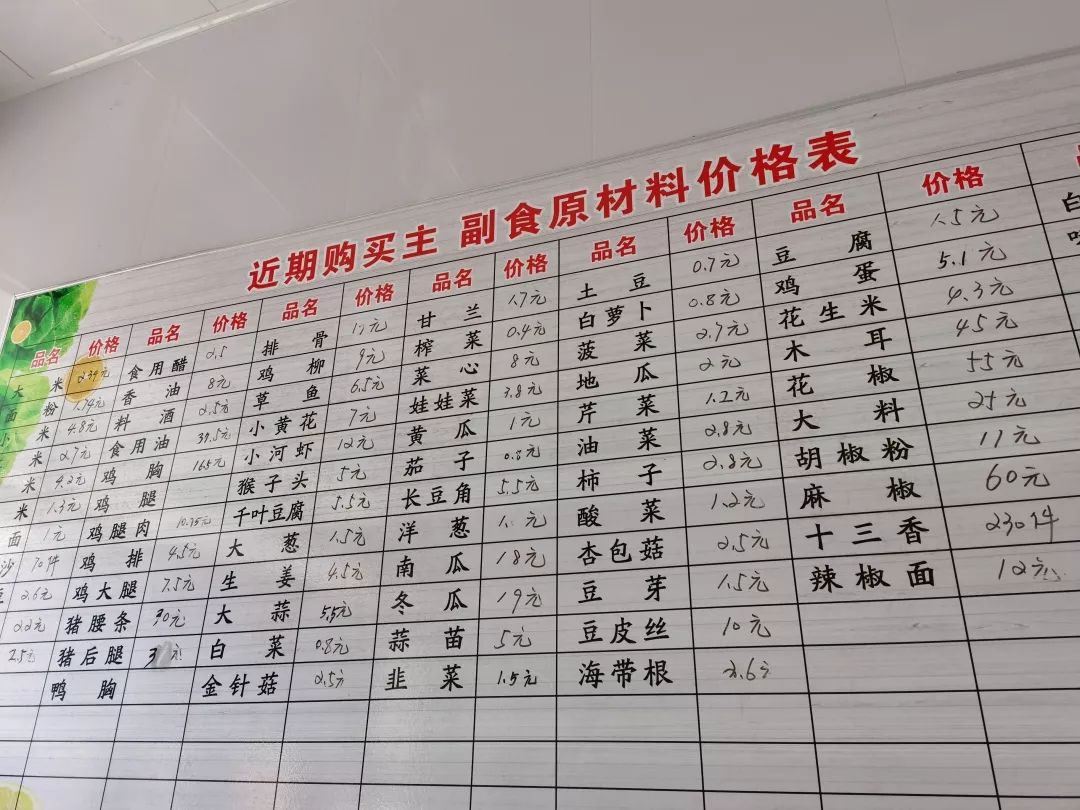 近期购买主 副食原材料价格表
品名 价格 品名 价格 品名 价格 品名 价格 品名 价格 品名 价格
大米 239元 食用醋 2.5 排骨 甘兰 1.7元 土豆 0.7元 豆腐 1.5元 白
面粉 1.74元 香油 8元 鸡柳 9元 榨菜 0.4元 白萝卜 0.8元 鸡蛋 5.1元
小米 4.8元 料酒 2.5元 草鱼 6.5元 菜心 8元 菠菜 2.9元 花生米
米 2.7元 食用油 37.5元 小黄花 7元 娃娃菜 3.8元 地瓜 2元 木耳 45元
米 4.2元 鸡胸 165元 小河虾 12元 黄瓜 1元 芹菜 1.2元 花椒 55元
米 1.3元 鸡腿 猴子头 5元 茄子 0.8元 油菜 2.8元 大料 25元
面 1元 鸡腿肉 10.75元 千叶豆腐 5.5元 长豆角 5.5元 柿子 2.8元 胡椒粉 11元
沙 70件 鸡排 4.5元 大葱 1.5元 洋葱 酸菜 1.2元 麻椒 60元
豆 2.6元 鸡大腿 7.5元 生姜 4.5元 南瓜 18元 杏包菇 2.5元 十三香 230件
2.2元 猪腰条 30元 大蒜 5.5元 冬瓜 19元 豆芽 1.5元 辣椒面 12元
2.5元 猪后腿 白菜 0.8元 蒜苗 5元 豆皮丝 10元
鸭胸 金针菇 2.5元 韭菜 1.5元 海带根 3.6元